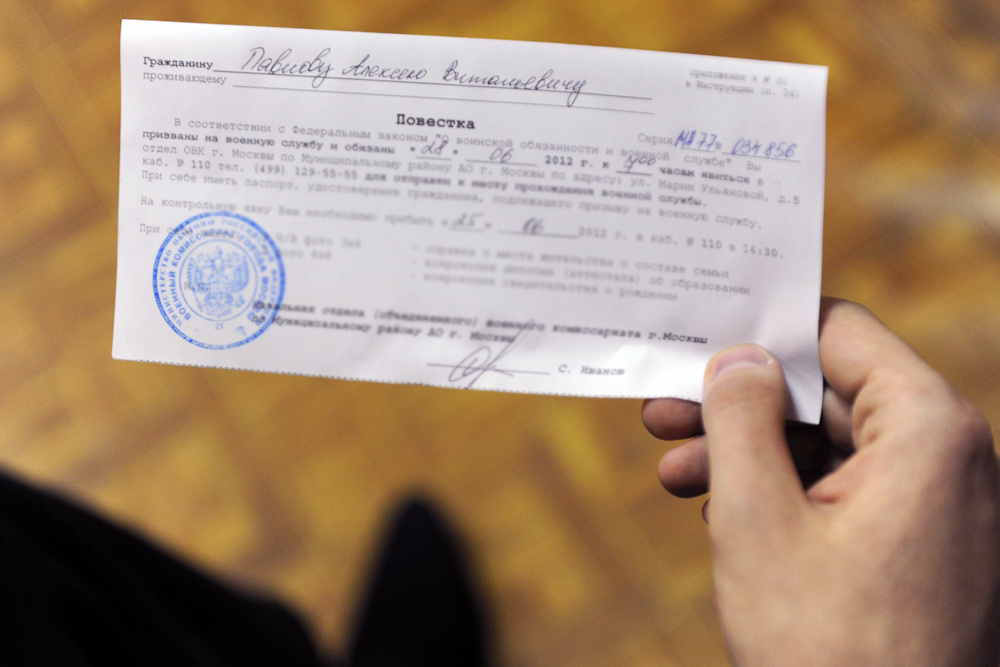 Гражданину Павлову Алексею Витальевичу
проживающему
Приложение к № 30
к Инструкции (п. 34)
Повестка
Серия МД77 № 034856
В соответствии с Федеральным законом "О воинской обязанности и военной службе" Вы
призваны на военную службу и обязаны "28" 06 2012 г. к часам явиться в
отдел ОВК г. Москвы по Муниципальному району АО г. Москвы по адресу: ул. Марии Ульяновой, д.5
каб. № 110 тел. (499) 129-55-55 для отправки к месту прохождения военной службы.
При себе иметь паспорт, удостоверение гражданина, подлежащего призыву на военную службу.
На контрольную явку Вам необходимо прибыть "25" 06 2012 г. в каб. № 110 в 14:30.
При
фото 3х4 - справка с места жительства о составе семьи
фото 4х6 - ксерокопия диплома (аттестата) об образовании
- ксерокопия свидетельства о рождении
Начальник отдела (объединенного) военного комиссариата г.Москвы
по Муниципальному району АО г. Москвы
С. Иванов
МИНИСТЕРСТВО ОБОРОНЫ РОССИЙСКОЙ
ВОЕННЫЙ КОМИССАРИАТ ГОРОДА МОСКВЫ